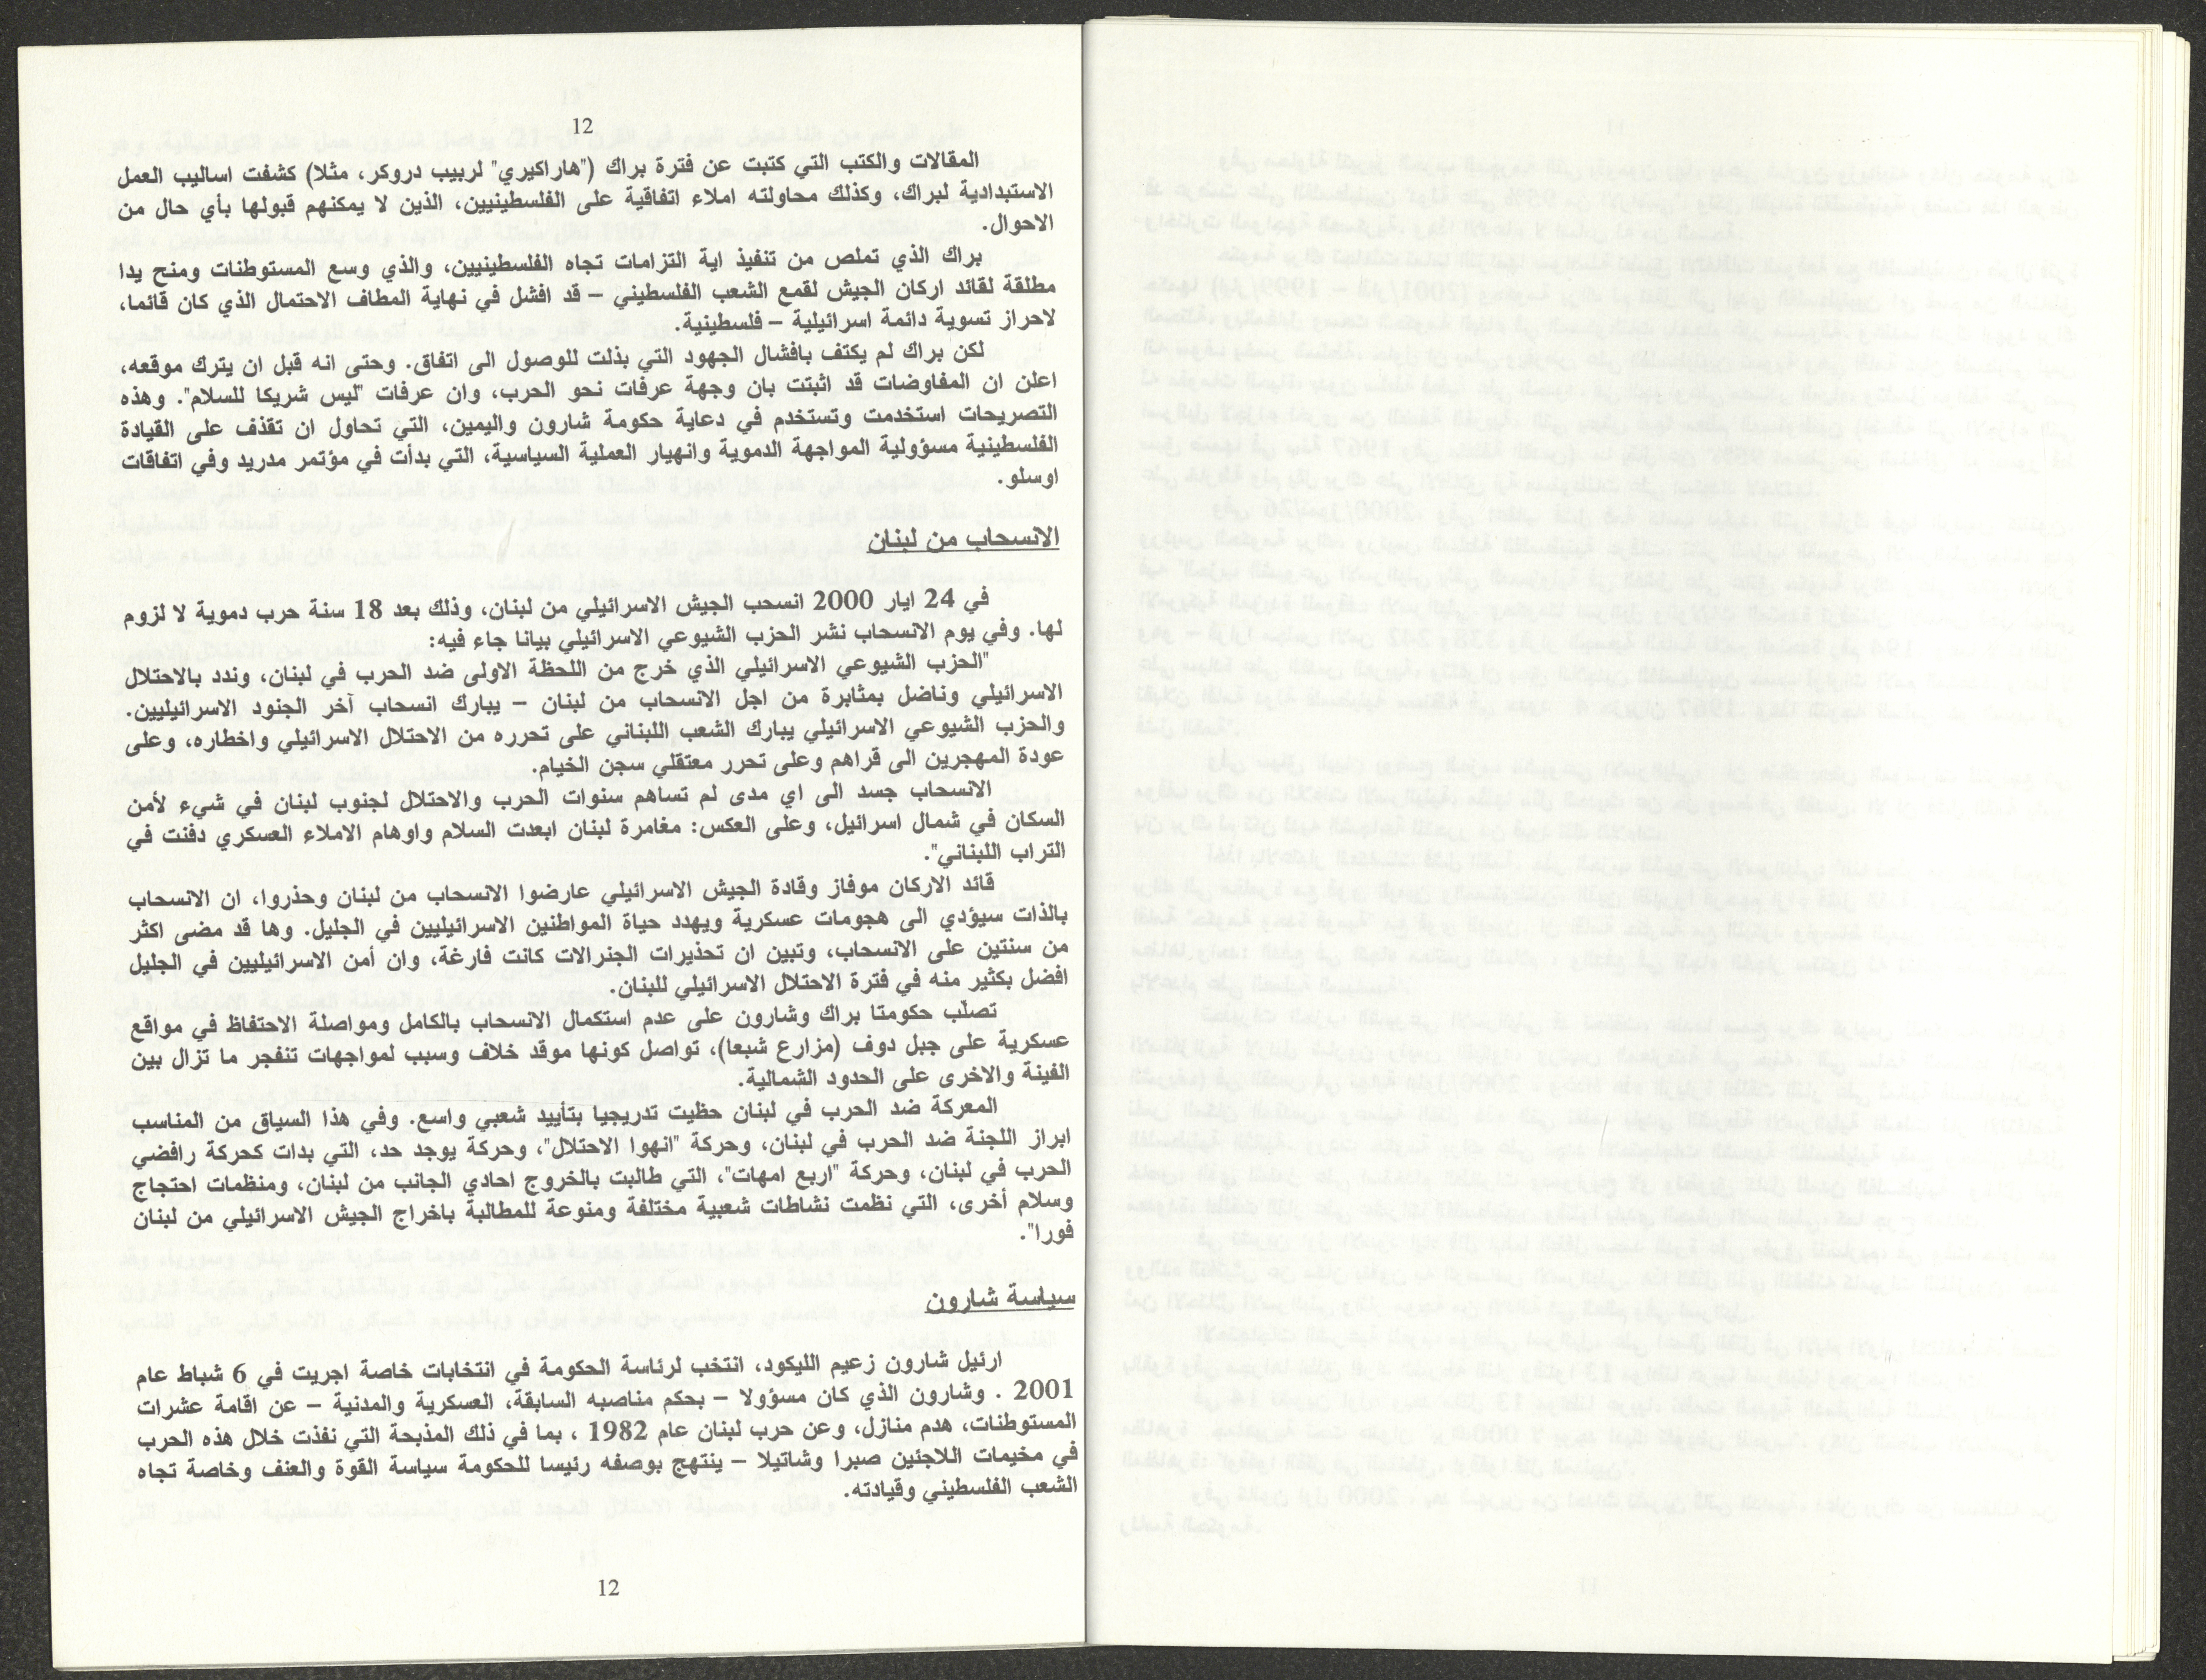 12
المقالات والكتب التي كتبت عن فترة براك ("هاراكيري" لربيب دروكر، مثلا) كشفت اساليب العمل
الاستبدادية لبراك، وكذلك محاولته املاء اتفاقية على الفلسطينيين، الذين لا يمكنهم قبولها بأي حال من
الاحوال.
براك الذي تملص من تنفيذ اية التزامات تجاه الفلسطينيين، والذي وسع المستوطنات ومنح يدا
مطلقة لقائد اركان الجيش لقمع الشعب الفلسطيني – قد افشل في نهاية المطاف الاحتمال الذي كان قائما،
لاحراز تسوية دائمة اسرائيلية – فلسطينية.
لكن براك لم يكتف بافشال الجهود التي بذلت للوصول الى اتفاق. وحتى انه قبل ان يترك موقعه،
اعلن ان المفاوضات قد اثبتت بان وجهة عرفات نحو الحرب، وان عرفات "ليس شريكا للسلام". وهذه
التصريحات استخدمت وتستخدم في دعاية حكومة شارون واليمين، التي تحاول ان تقذف على القيادة
الفلسطينية مسؤولية المواجهة الدموية وانهيار العملية السياسية، التي بدأت في مؤتمر مدريد وفي اتفاقات
اوسلو.
الانسحاب من لبنان
في 24 ايار 2000 انسحب الجيش الاسرائيلي من لبنان، وذلك بعد 18 سنة حرب دموية لا لزوم
لها. وفي يوم الانسحاب نشر الحزب الشيوعي الاسرائيلي بيانا جاء فيه:
"الحزب الشيوعي الاسرائيلي الذي خرج من اللحظة الاولى ضد الحرب في لبنان، وندد بالاحتلال
الاسرائيلي وناضل بمثابرة من اجل الانسحاب من لبنان – يبارك انسحاب آخر الجنود الاسرائيليين.
والحزب الشيوعي الاسرائيلي يبارك الشعب اللبناني على تحرره من الاحتلال الاسرائيلي واخطاره، وعلى
عودة المهجرين الى قراهم وعلى تحرر معتقلي سجن الخيام.
الانسحاب جسد الى اي مدى لم تساهم سنوات الحرب والاحتلال لجنوب لبنان في شيء لأمن
السكان في شمال اسرائيل، وعلى العكس: مغامرة لبنان ابعدت السلام واوهام الاملاء العسكري دفنت في
التراب اللبناني".
قائد الاركان موفاز وقادة الجيش الاسرائيلي عارضوا الانسحاب من لبنان وحذروا، ان الانسحاب
بالذات سيؤدي الى هجومات عسكرية ويهدد حياة المواطنين الاسرائيليين في الجليل. وها قد مضى اكثر
من سنتين على الانسحاب، وتبين ان تحذيرات الجنرالات كانت فارغة، وان أمن الاسرائيليين في الجليل
افضل بكثير منه في فترة الاحتلال الاسرائيلي للبنان.
تصلّب حكومتا براك وشارون على عدم استكمال الانسحاب بالكامل ومواصلة الاحتفاظ في مواقع
عسكرية على جبل دوف (مزارع شبعا)، تواصل كونها موقد خلاف وسبب لمواجهات تنفجر ما تزال بين
الفينة والاخرى على الحدود الشمالية.
المعركة ضد الحرب في لبنان حظيت تدريجيا بتأييد شعبي واسع. وفي هذا السياق من المناسب
ابراز اللجنة ضد الحرب في لبنان، وحركة "انهوا الاحتلال"، وحركة يوجد حد، التي بدات كحركة رافضي
الحرب في لبنان، وحركة "اربع امهات"، التي طالبت بالخروج احادي الجانب من لبنان، ومنظمات احتجاج
وسلام أخرى، التي نظمت نشاطات شعبية مختلفة ومنوعة للمطالبة باخراج الجيش الاسرائيلي من لبنان
فورا".
سياسة شارون
ارئيل شارون زعيم الليكود، انتخب لرئاسة الحكومة في انتخابات خاصة اجريت في 6 شباط عام
2001 . وشارون الذي كان مسؤولا – بحكم مناصبه السابقة، العسكرية والمدنية – عن اقامة عشرات
المستوطنات، هدم منازل، وعن حرب لبنان عام 1982 ، بما في ذلك المذبحة التي نفذت خلال هذه الحرب
في مخيمات اللاجئين صبرا وشاتيلا – ينتهج بوصفه رئيسا للحكومة سياسة القوة والعنف وخاصة تجاه
الشعب الفلسطيني وقيادته.
12